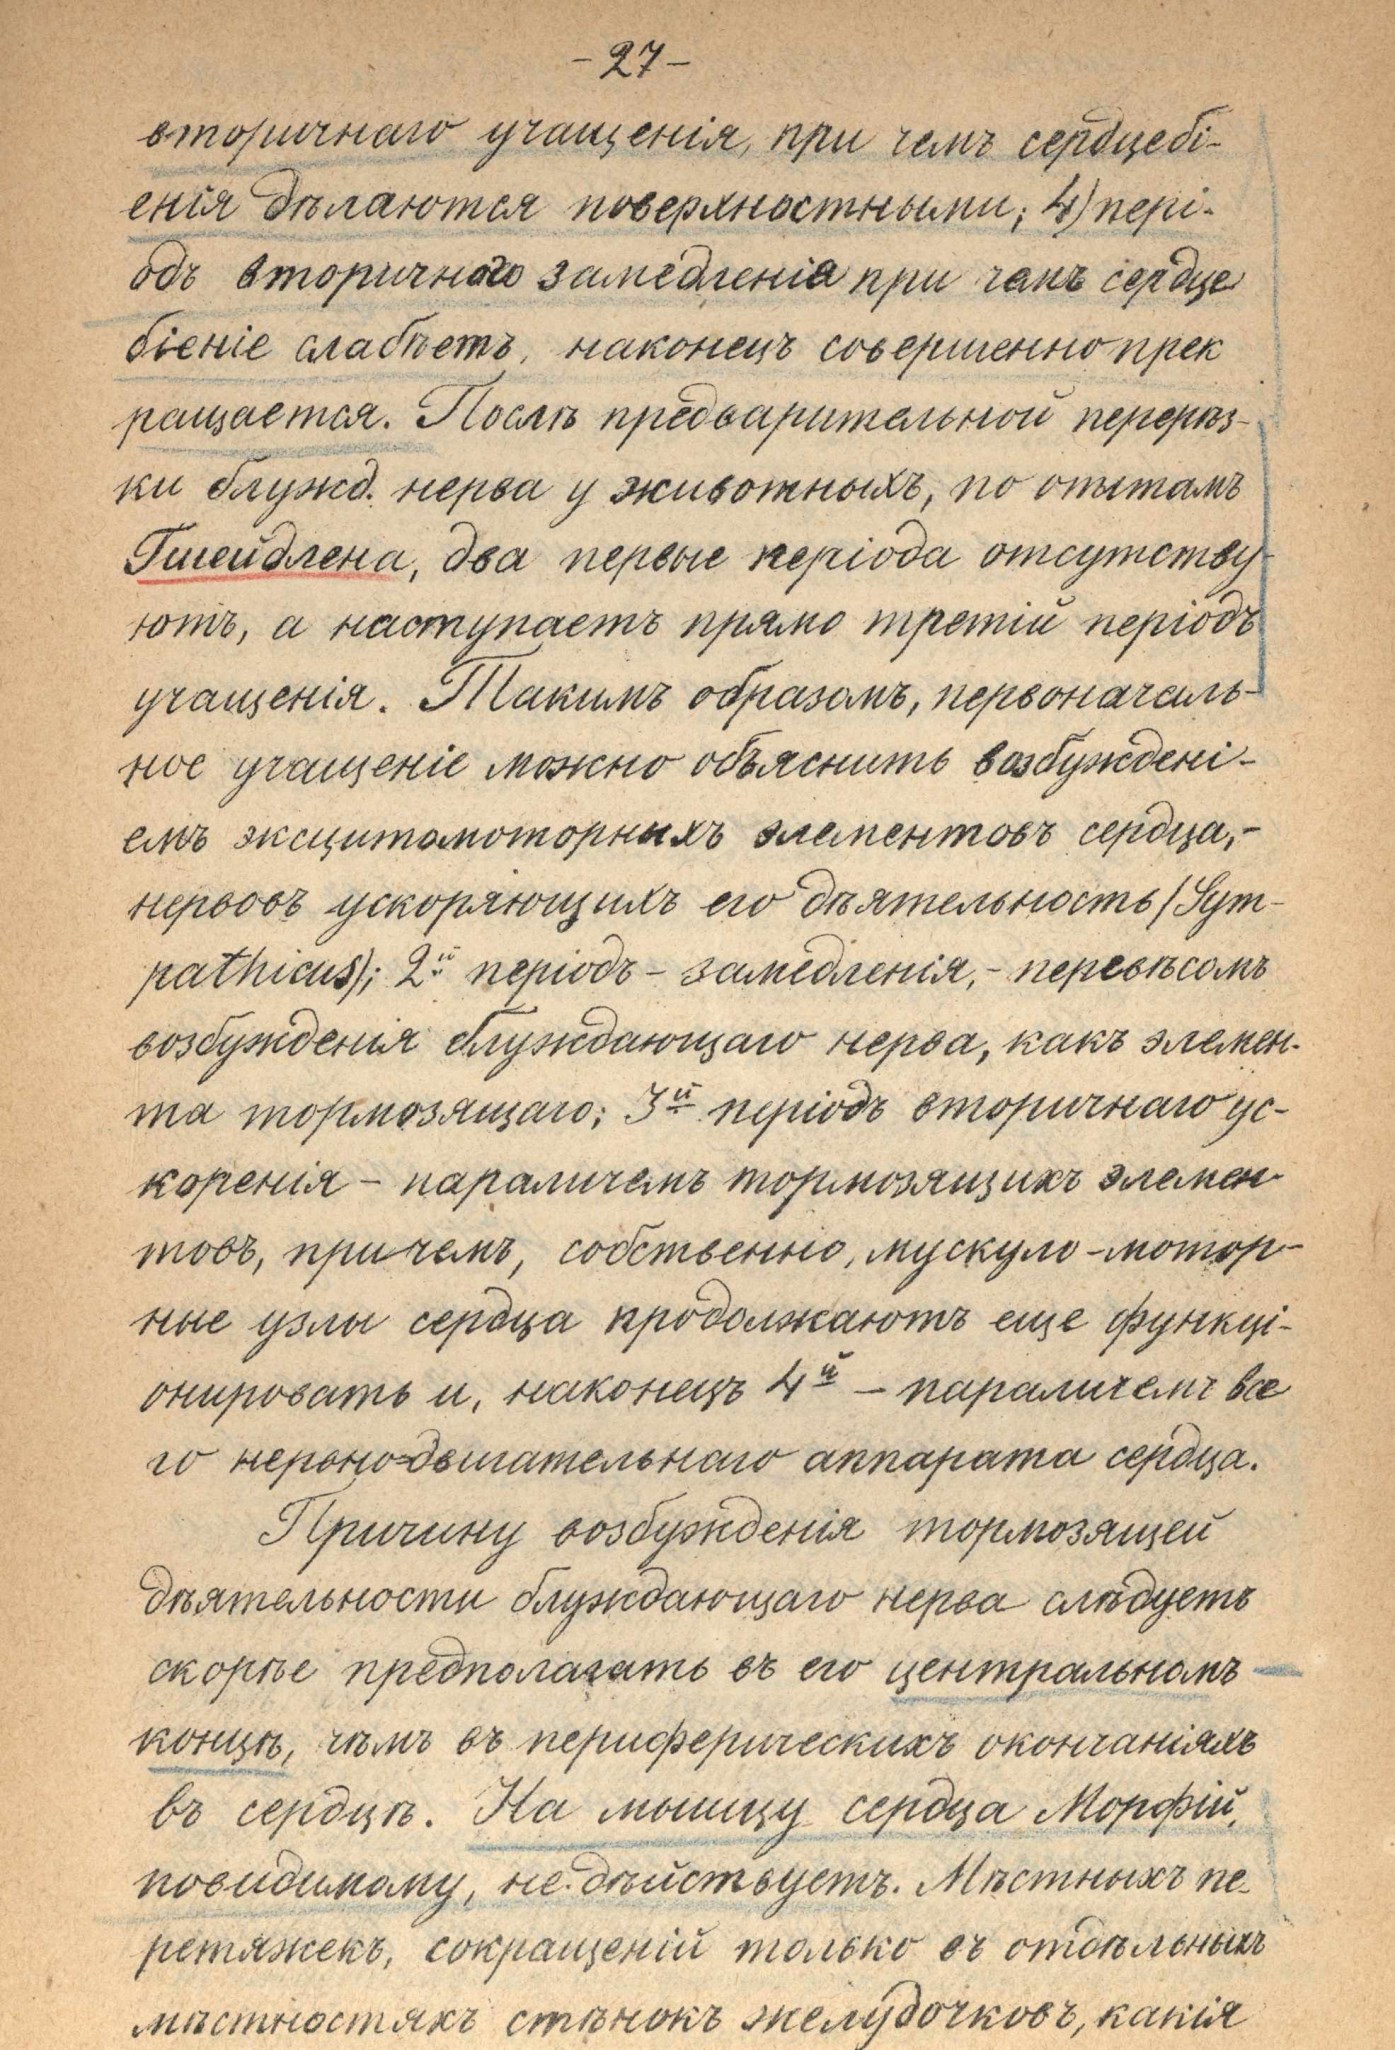 -27-
вторичнаго учащенія, при чемъ сердцебі-
енія дѣлаются поверхностными; 4) пері-
одъ вторичнаго замедленія при чемъ сердце
біеніе слабѣетъ, наконецъ совершенно прек
ращается. Послѣ предварительной перерѣз-
ки блужд. нерва у животныхъ, по опытамъ
Гшейдлена, два первые періода отсутству-
ютъ, а наступаетъ прямо третій періодъ
учащенія. Такимъ образомъ, первоначаль-
ное учащеніе можно объяснить возбуждені-
емъ эксцитомоторныхъ элементовъ сердца,-
нервовъ ускоряющихъ его дѣятельность (Sym-
pathicus); 2й періодъ - замедленія, - перевѣсомъ
возбужденія блуждающаго нерва, какъ элемен-
та тормозящаго; 3й періодъ вторичнаго ус-
коренія - параличемъ тормозящихъ элемен-
товъ, при чемъ, собственно, мускуло-мотор-
ные узлы сердца продолжаютъ еще функці-
онировать и, наконецъ 4й - параличемъ все
го нервно-двигательнаго аппарата сердца.
Причину возбужденія тормозящей
дѣятельности блуждающаго нерва слѣдуетъ
скорѣе предполагать въ его центральномъ
концѣ, чѣмъ въ периферическихъ окончаніяхъ
въ сердцѣ. На мышцу сердца Морфій,
повидимому, не дѣйствуетъ. Мѣстныхъ пе-
ретяжекъ, сокращеній только въ отдѣльныхъ
мѣстностяхъ стѣнокъ желудочковъ, какія